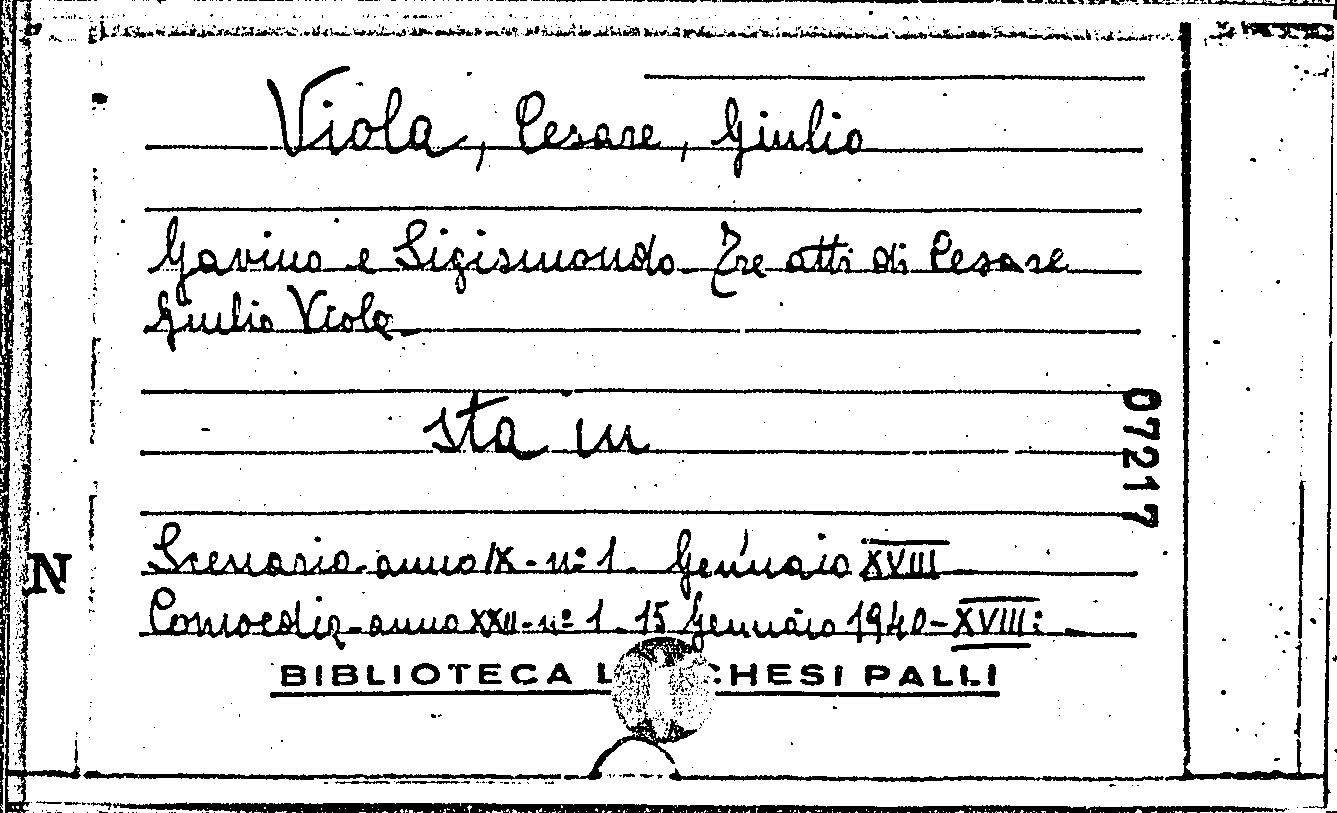 Viola, Cesare, Giulio
Gavino e Sigismondo Tre atti di Cesare
Giulio Viola
sta in
07217
Scenario anno IX - nº 1. Gennaio XVIII
N
Comoedia - anno XXII - nº 1. 15 Gennaio 1940 - XVIII:
BIBLIOTECA L CHESI PALLI